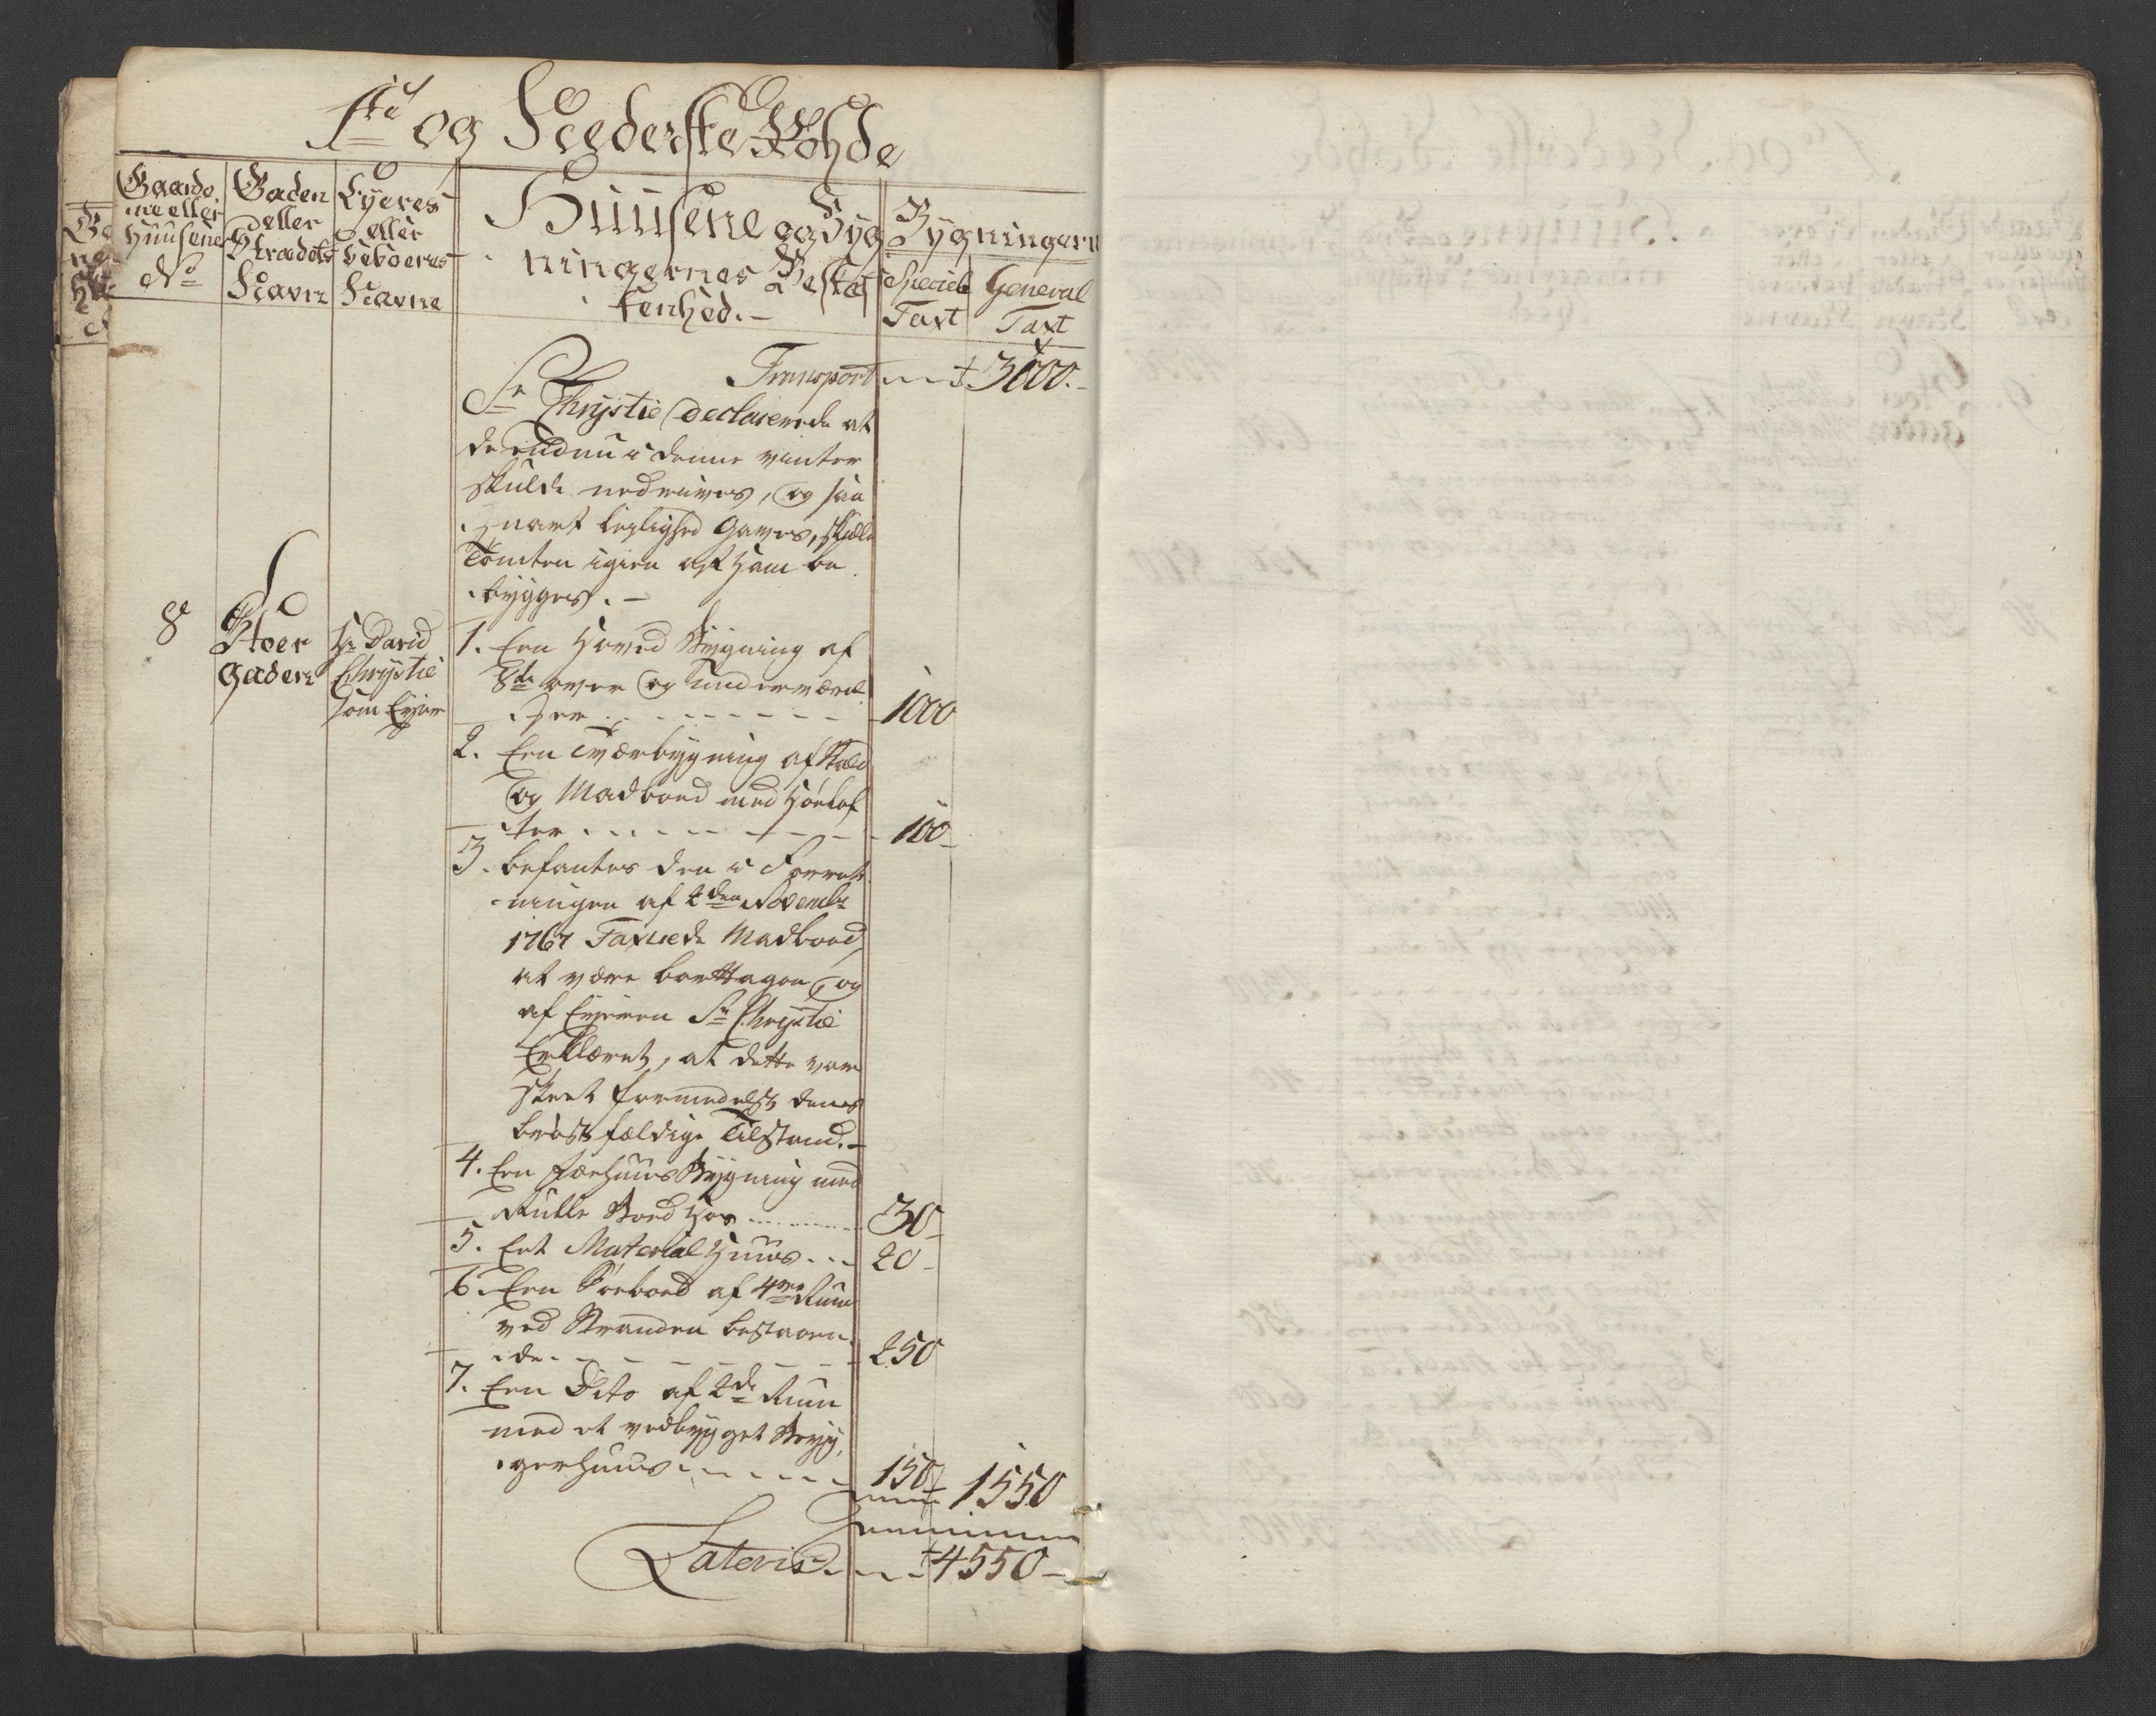 1ste og Nederste Rohde
Gaarde
ne eller
Huusenes
No
Gaden
eller
Strædets
Navn
Eyeres
eller
beboeres
Navne
Huusene og Byg
ningernes Beskaf
fenhed.
Bygningern
Speciele
Taxt
General
Taxt
Transport 3000.
Sr Chrystie Declarerede at
de endnu i denne vinter
skulde nedrives, og saa
snart leylighed Gaves, skulde
Tomten igien af Ham be
bygges.
8
Stoer
gaden
Hr David
Chrystie
som Eyer
1. Een Hoved Bygning af
8te over og under værel
ser 1000
2. Een Tværbygning af Stald
og Madboed med Høelof
ter 100
3. befantes den i Forret
ningen af 2den Novembr
1767 Taxerede Madboed
at være borttagen, og
af Eyeren Sr Chrystie
Erklæret, at dette var
skeet formedelst denes
brøstfældige Tilstand.
4. Een Fæehuus Bygning med
Rulle Boed hos 30
5. Eet Material Huus 20
6. Een Søeboed af 4re Rum
ved Stranden bestaaen
de 250
7. Een Dito af 2de Rum
med et vedbygget Bryg
gerhuus 150 1550
Lateris 4550